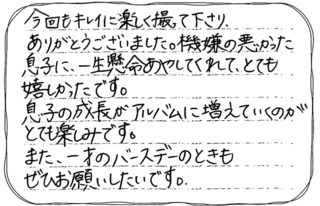 今回もキレイに楽しく撮って下さり、
ありがとうございました。機嫌の悪かった
息子に、一生懸命あやしてくれて、とても
嬉しかったです。
息子の成長がアルバムに増えていくのが
とても楽しみです。
また、一才のバースデーのときも
ぜひお願いしたいです。